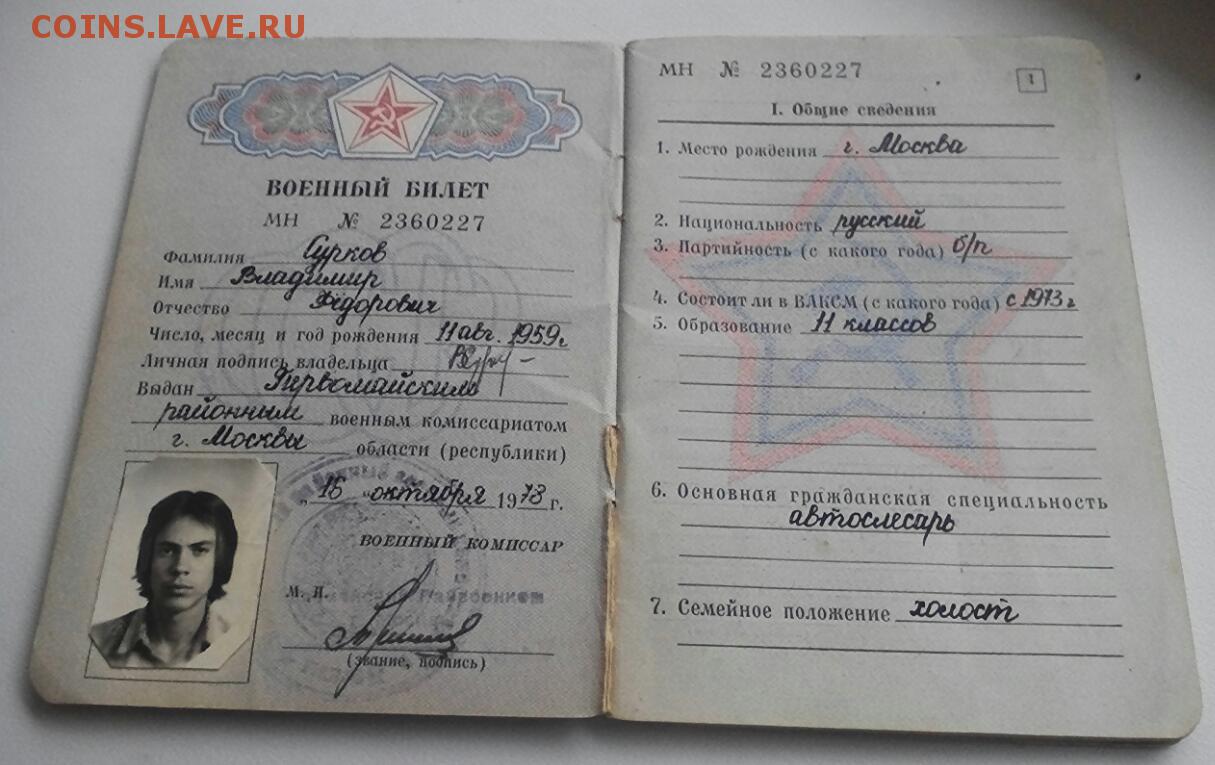 COINS.LAVE.RU
ВОЕННЫЙ БИЛЕТ
МН № 2360227
Фамилия Сурков
Имя Владимир
Отчество Фёдорович
Число, месяц и год рождения 11 авг. 1959 г
Личная подпись владельца
Выдан Первомайским
районным военным комиссариатом
г. Москвы области (республики)
„16 “ октября 1978 г.
ВОЕННЫЙ КОМИССАР
М. П.
(звание, подпись)
МН № 2360227
1
I. Общие сведения
1. Место рождения г. Москва
2. Национальность русский
3. Партийность (с какого года) б/п
4. Состоит ли в ВЛКСМ (с какого года) с 1973 г
5. Образование 11 классов
6. Основная гражданская специальность
автослесарь
7. Семейное положение холост